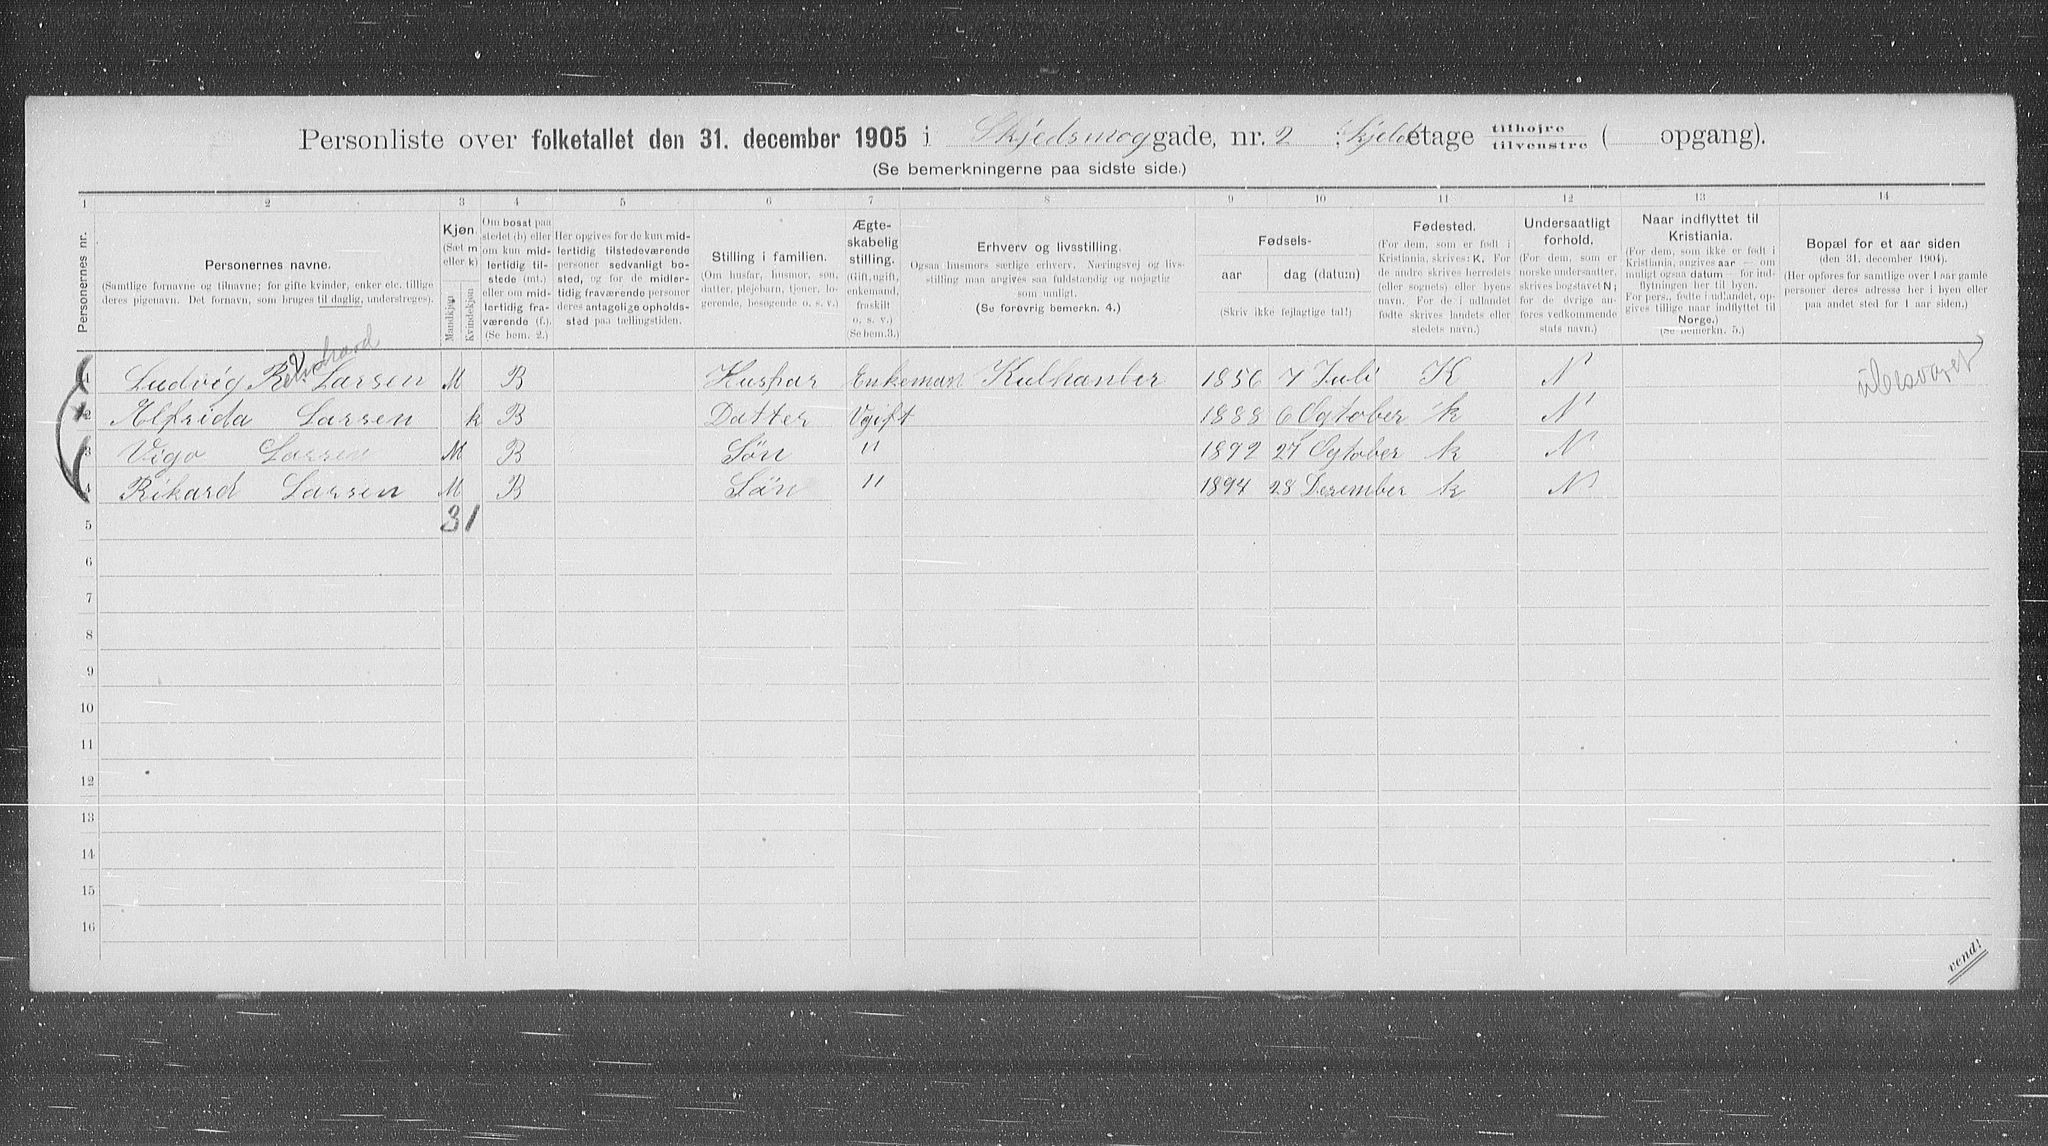 Personliste over folketallet den 31. december 1905 i Skjedsmoggade, nr. 2 kjeld etage tilhøjre tilvenstre ( opgang).
(Se bemerkningerne paa sidste side.)
1 2 3 4 5 6 7 8 9 10 11 12 13 14
Personernes nr.
Personernes navne.
(Samtlige fornavne og tilnavne; for gifte kvinder, enker etc. tillige
deres pigenavn. Det fornavn, som bruges til daglig, understreges).
Kjøn.
(Sæt m
eller k)
Mandkjøn
Kvindekjøn
Om bosat paa
stedet (b) eller
om kun mid-
lertidig til-
stede (mt.)
eller om mid-
lertidig fra-
værende (f.).
(Se bem. 2.)
Her opgives for de kun mid-
lertidig tilstedeværende
personer sedvanlig bo-
sted, og for de midler-
tidig fraværende personer
deres antagelige opholds-
sted paa tællingstiden.
Stilling i familien.
(Om husfar, husmor, søn,
datter, plejebarn, tjener, lo-
gerende, besøgende o. s. v.)
Ægte-
skabelig
stilling.
(Gift, ugift,
enkemand,
fraskilt
o. s. v.)
(Se bem. 3.)
Erhverv og livsstilling.
Ogsaa husmors særlige erhverv. Næringsvej og livs-
stilling maa angives saa fuldstændig og nøjagtig
som muligt.
(Se forøvrig bemerkn. 4.)
Fødsels-
aar dag (datum)
(Skriv ikke fejlagtige tal!)
Fødested.
(For dem, som er født i
Kristiania, skrives: K. For
de andre skrives herredets
(eller sognets) eller byens
navn. For de i udlandet
fødte skrives landets eller
stedets navn.)
Undersaatligt
forhold.
(For dem, som er
norske undersaatter,
skrives bogstavet N;
for de øvrige an-
føres vedkommende
stats navn.)
Naar indflyttet til
Kristiania.
(For dem, som ikke er født i
Kristiania, angives aar — om
muligt ogsaa datum — for ind-
flytningen her til byen.
For pers., fødte i udlandet, op-
gives tillige naar indflyttet til
Norge.)
(Se bemerkn. 5.)
Bopæl for et aar siden
(den 31. december 1904).
(Her opføres for samtlige over 1 aar gamle
personer deres adresse her i byen eller
paa andet sted for 1 aar siden.)
1 Ludvig Larsen M B Husfar Enkeman Kulhanler 1856 7 Juli K N ubesvaret
2 Alfrida Larsen k B Datter Ugift 1888 6 Ogtober k N
3 Vigo Larsen M B Søn " 1892 27 Ogtober k N
4 Rikard Larsen M B Søn " 1894 28 Desember k N
5 3 1
6
7
8
9
10
11
12
13
14
15
16
vend!